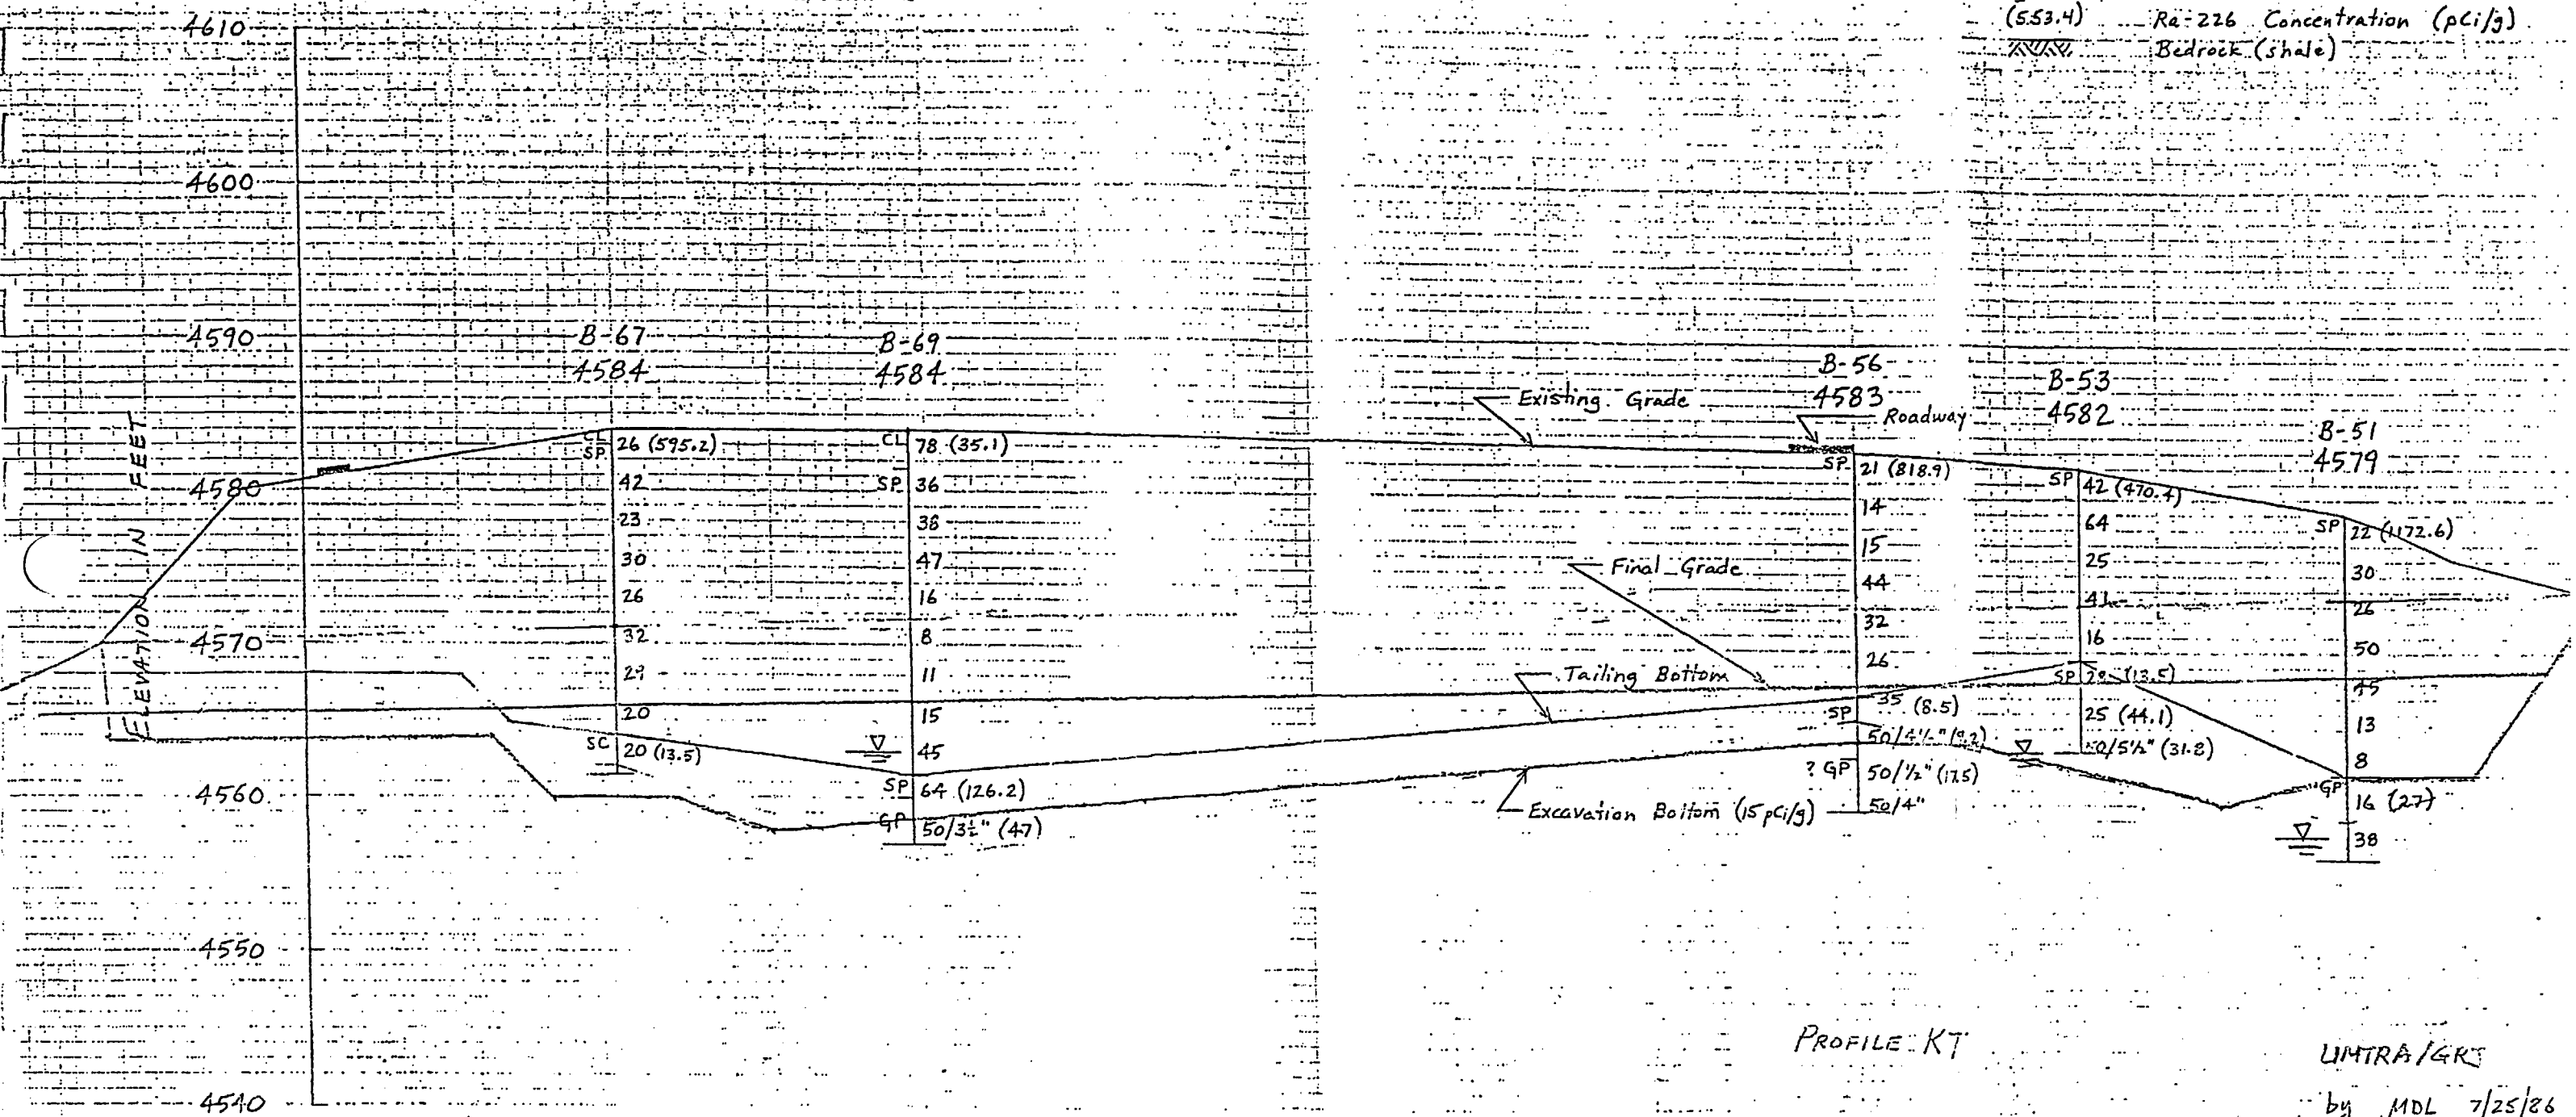 (553.4) Ra-226 Concentration (pCi/g)
Bedrock (shale)
4610
4600
4590
4580
4570
4560
4550
4540
ELEVATION IN FEET
B-67
4584
CL
SP
26 (595.2)
42
23
30
26
32
29
20
SC
20 (13.5)
B-69
4584
CL
78 (35.1)
SP
36
38
47
16
8
11
15
45
SP
64 (126.2)
GP
50/3½" (47)
Existing Grade
Final Grade
Tailing Bottom
Excavation Bottom (15 pCi/g)
B-56
4583
Roadway
SP
21 (818.9)
14
15
44
32
26
35 (8.5)
SP
50/4½"
? GP
50/½" (17.5)
50/4"
B-53
4582
SP
42 (470.4)
64
25
41
16
SP
(13.5)
25 (44.1)
50/5½" (31.8)
B-51
4579
SP
22 (1172.6)
30
26
50
45
13
8
GP
16 (27)
38
PROFILE KT
UMTRA/GRJ
by MDL 7/25/86